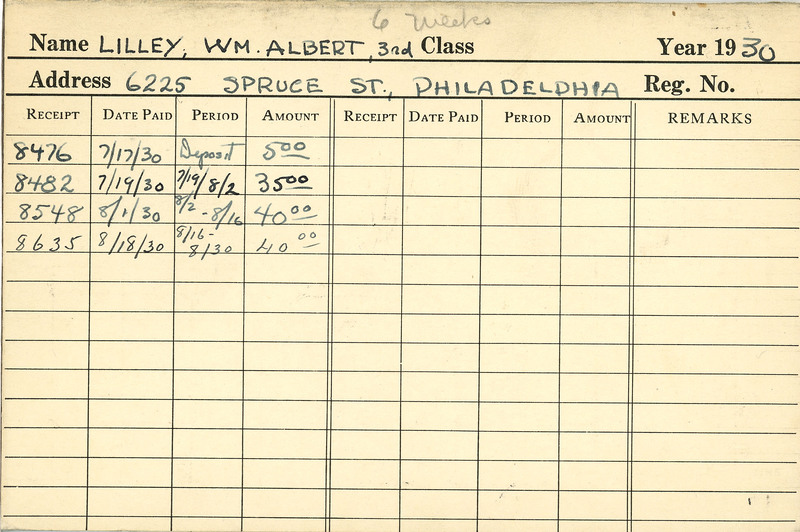 6 weeks
Name LILLEY, WM. ALBERT, 3rd Class Year 1930
Address 6225 SPRUCE ST., PHILADELPHIA Reg. No.
RECEIPT DATE PAID PERIOD AMOUNT RECEIPT DATE PAID PERIOD AMOUNT REMARKS
8476 7/17/30 Deposit 5 00
8482 7/19/30 7/19/8/2 35 00
8548 8/1/30 8/2 - 8/16 40 00
8635 8/18/30 8/16 - 8/30 40 00